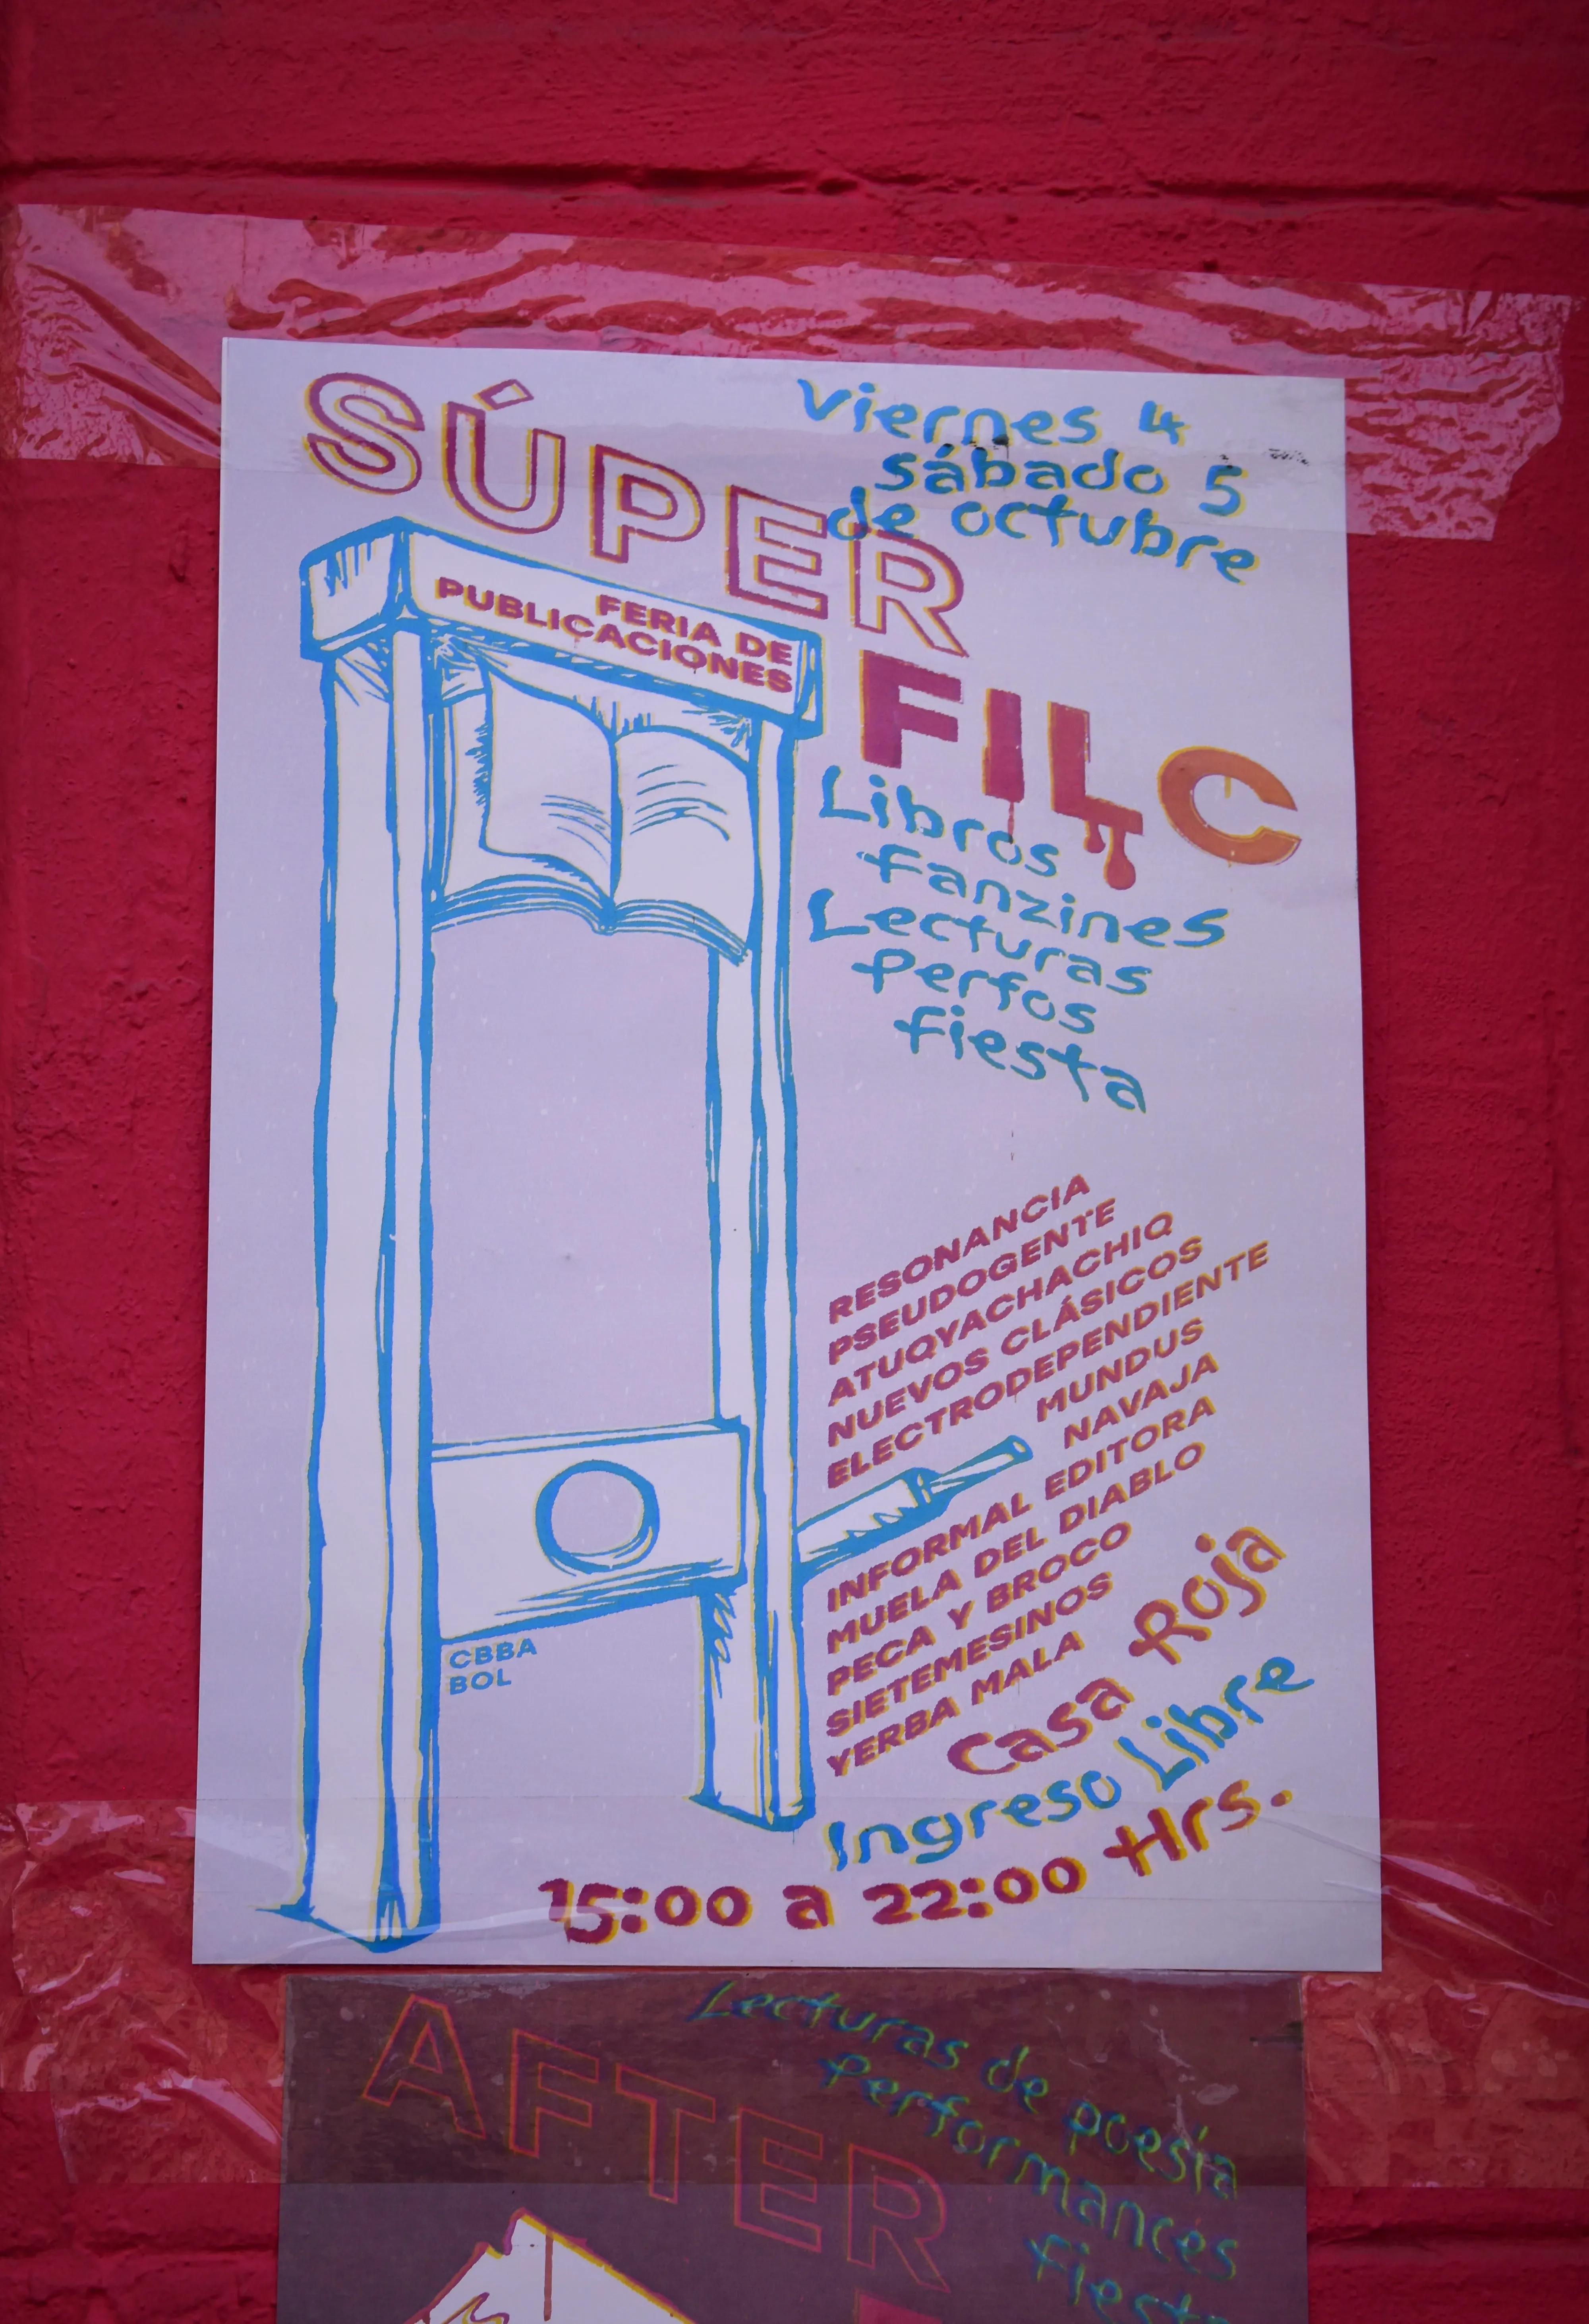 SÚPER
FILC
Viernes 4
sábado 5
de octubre
FERIA DE
PUBLICACIONES
Libros
fanzines
Lecturas
Perfos
fiesta
RESONANCIA
PSEUDOGENTE
ATUQYACHACHIQ
NUEVOS CLÁSICOS
ELECTRODEPENDIENTE
MUNDUS
NAVAJA
INFORMAL EDITORA
MUELA DEL DIABLO
PECA Y BROCO
SIETEMESINOS
YERBA MALA
CBBA
BOL
Casa Roja
Ingreso Libre
15:00 a 22:00 Hrs.
AFTER
Lecturas de poesía
Performances
fiesta